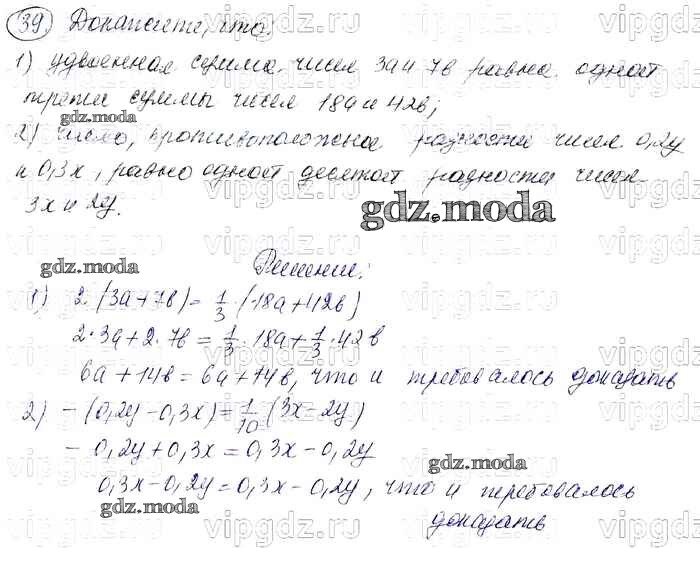 39. Докажите, что:
1) удвоенная сумма чисел 3a и 7в равна одной
трети суммы чисел 18a и 42в;
gdz.moda
2) число, противоположное разности чисел 0,2y
и 0,3x, равно одной десятой разности чисел
3x и 2y.
gdz.moda
gdz.moda
Решение:
1) 2·(3a+7в)= 1/3 ·(18a+42в)
2·3a+2·7в = 1/3·18a+1/3·42в
6a+14в=6a+14в, что и требовалось доказать
2) -(0,2y-0,3x)= 1/10 (3x-2y)
-0,2y+0,3x=0,3x-0,2y
gdz.moda
0,3x-0,2y=0,3x-0,2y, что и требовалось
gdz.moda
доказать
vipgdz.ru